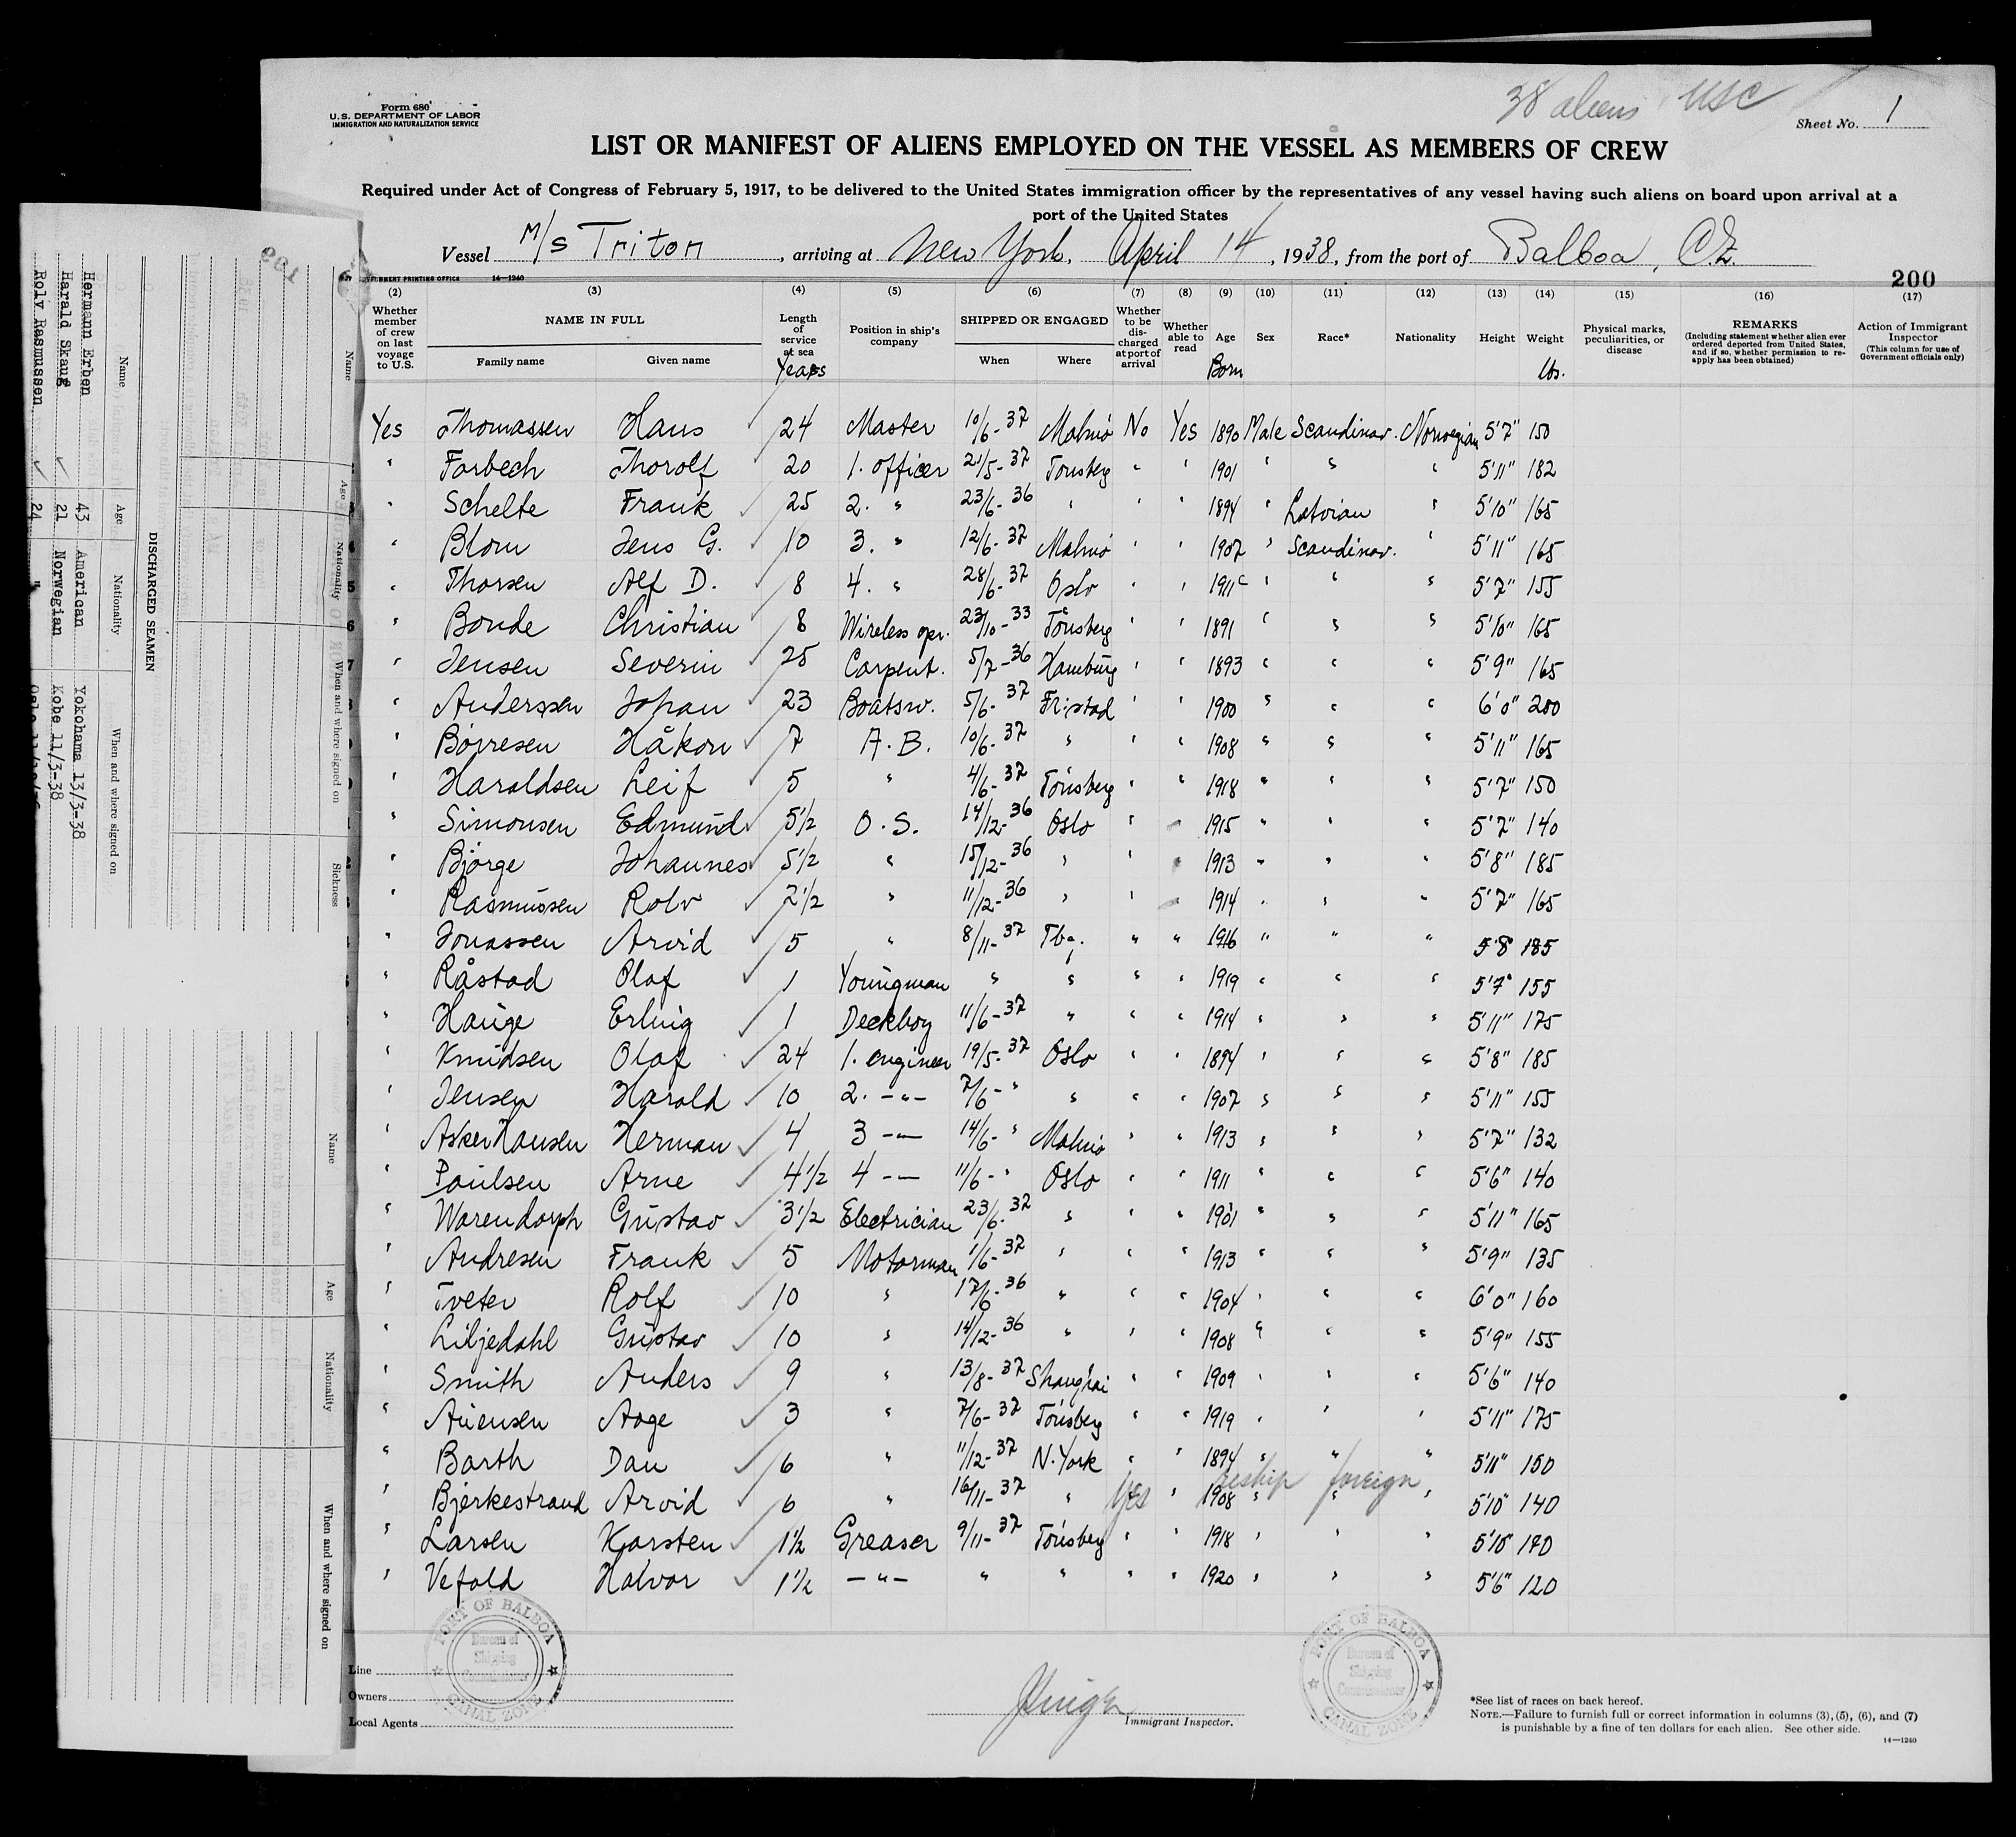 38 aliens USC
Form 680
U.S. DEPARTMENT OF LABOR
IMMIGRATION AND NATURALIZATION SERVICE
Sheet No. 1
LIST OR MANIFEST OF ALIENS EMPLOYED ON THE VESSEL AS MEMBERS OF CREW
Required under Act of Congress of February 5, 1917, to be delivered to the United States immigration officer by the representatives of any vessel having such aliens on board upon arrival at a
port of the United States
Vessel M/S Triton, arriving at New York, April 14, 1938, from the port of Balboa, C.Z.
200
14—1240
(2) (3) (4) (5) (6) (7) (8) (9) (10) (11) (12) (13) (14) (15) (16) (17)
Whether member of crew on last voyage to U.S.
NAME IN FULL
Family name Given name
Length of service at sea
Years
Position in ship's company
SHIPPED OR ENGAGED
When Where
Whether to be discharged at port of arrival
Whether able to read
Age
Born
Sex
Race*
Nationality
Height
Weight
lbs.
Physical marks, peculiarities, or disease
REMARKS
(Including statement whether alien ever ordered deported from United States, and if so, whether permission to re-apply has been obtained)
Action of Immigrant Inspector
(This column for use of Government officials only)
Yes Thomassen Hans 24 Master 10/6-37 Malmö No Yes 1890 Male Scandinav. Norwegian 5'7" 150
" Farbech Thorolf 20 1. officer 21/5-37 Tönsberg " " 1901 " " " 5'11" 182
" Schelte Frank 25 2. " 23/6-36 " " " 1894 " Latvian " 5'10" 165
" Blom Jens G. 10 3. " 12/6-37 Malmö " " 1907 " Scandinav. " 5'11" 165
" Thorsen Alf D. 8 4. " 28/6-37 Oslo " " 1911 " " " 5'7" 155
" Bonde Christian 8 Wireless opr. 23/10-33 Tönsberg " " 1891 " " " 5'10" 165
" Jensen Severin 25 Carpent. 5/7-36 Hamburg " " 1893 " " " 5'9" 165
" Anderssen Johan 23 Boatsw. 5/6-37 Fr:stad " " 1900 " " " 6'0" 200
" Börresen Håkon 7 A.B. 10/6-37 " " " 1908 " " " 5'11" 165
" Haraldsen Leif 5 " 4/6-37 Tönsberg " " 1918 " " " 5'7" 150
" Simonsen Edmund 5½ O.S. 14/12-36 Oslo " " 1915 " " " 5'7" 140
" Björge Johannes 5½ " 15/12-36 " " " 1913 " " " 5'8" 185
" Rasmussen Rolv 2½ " 11/12-36 " " " 1914 " " " 5'7" 165
" Jonassen Arvid 5 " 8/11-37 Tbg. " " 1916 " " " 5'8 185
" Råstad Olaf 1 Youngman " " " " 1919 " " " 5'7" 155
" Hauge Erling 1 Deckboy 11/6-37 " " " 1914 " " " 5'11" 175
" Knudsen Olaf 24 1. engineer 19/5-37 Oslo " " 1894 " " " 5'8" 185
" Jensen Harald 10 2. -"- 7/6-" " " " 1907 " " " 5'11" 155
" Asker Hansen Herman 4 3 -"- 14/6-" Malmö " " 1913 " " " 5'7" 132
" Paulsen Arne 4½ 4 -"- 11/6-" Oslo " " 1911 " " " 5'6" 140
" Warendorph Gustav 3½ Electrician 23/6-37 " " " 1901 " " " 5'11" 165
" Andresen Frank 5 Motorman 1/6-37 " " " 1913 " " " 5'9" 135
" Tveter Rolf 10 " 17/6-36 " " " 1904 " " " 6'0" 160
" Liljedahl Gustav 10 " 14/12-36 " " " 1908 " " " 5'9" 155
" Smith Anders 9 " 13/8-37 Shanghai " " 1909 " " " 5'6" 140
" Auensen Aage 3 " 7/6-37 Tönsberg " " 1919 " " " 5'11" 175
" Barth Dan 6 " 11/12-37 N. York " " 1894 " " " 5'11" 150
" Bjerkestrand Arvid 6 " 16/11-37 " Yes " 1908 " " " 5'10" 140
reship foreign
" Larsen Karsten 1½ Greaser 9/11-37 Tönsberg " " 1918 " " " 5'10" 140
" Vefald Halvor 1½ -"- " " " " 1920 " " " 5'6" 120
PORT OF BALBOA
Bureau of Shipping Commissioner
CANAL ZONE
PORT OF BALBOA
Bureau of Shipping Commissioner
CANAL ZONE
Line
Owners
Local Agents
Immigrant Inspector.
*See list of races on back hereof.
NOTE.—Failure to furnish full or correct information in columns (3), (5), (6), and (7)
is punishable by a fine of ten dollars for each alien. See other side.
14—1240
199
DISCHARGED SEAMEN
Name Age Nationality When and where signed on
Hermann Erben 43 American Yokohama 13/3-38
Harald Skaug 21 Norwegian Kobe 11/3-38
Rolv Rasmussen 24 "
Name Age Nationality When and where signed on Sickness
Name Age Nationality When and where signed on